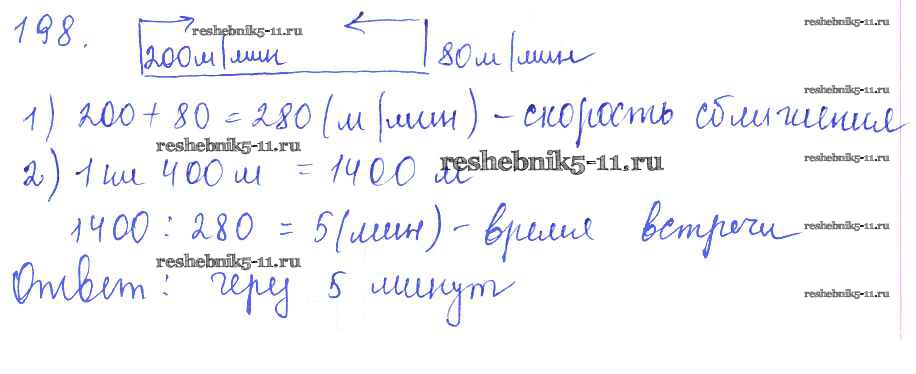 198. reshebnik5-11.ru
200м/мин 80м/мин
reshebnik5-11.ru
1) 200 + 80 = 280 (м/мин) - скорость сближения
reshebnik5-11.ru reshebnik5-11.ru
2) 1 км 400 м = 1400 м
1400 : 280 = 5 (мин) - время встречи
reshebnik5-11.ru
reshebnik5-11.ru
Ответ: через 5 минут
reshebnik5-11.ru